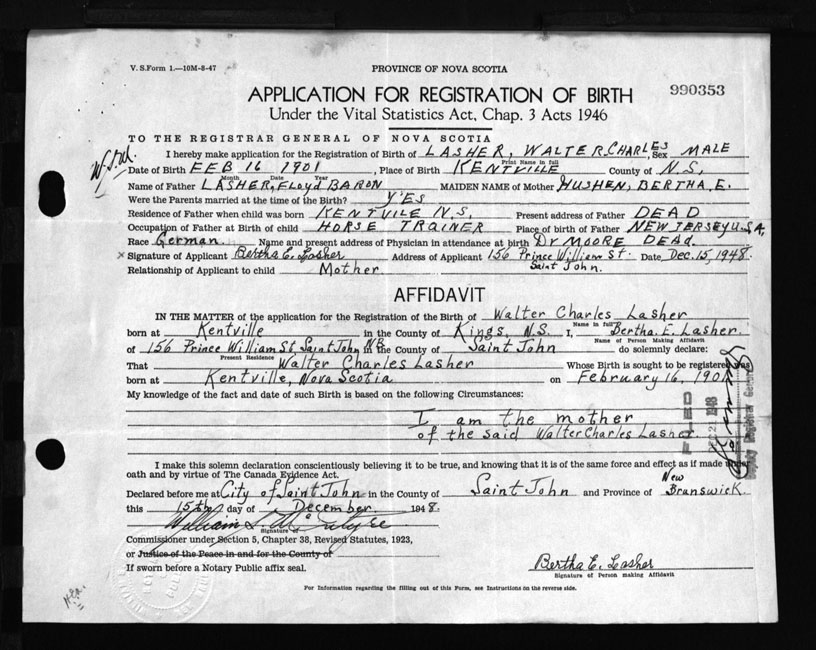 V. S. Form 1.—10M-8-47
PROVINCE OF NOVA SCOTIA
990353
APPLICATION FOR REGISTRATION OF BIRTH
Under the Vital Statistics Act, Chap. 3 Acts 1946
TO THE REGISTRAR GENERAL OF NOVA SCOTIA
I hereby make application for the Registration of Birth of LASHER, WALTER CHARLES Sex MALE
Print Name in full
Date of Birth FEB 16 1901, Place of Birth KENTVILLE County of N.S,
Month Date Year
Name of Father LASHER, FLOYD BARON MAIDEN NAME of Mother HUSHEN, BERTHA, E.
Were the Parents married at the time of the Birth? YES
Residence of Father when child was born KENTVILE N.S. Present address of Father DEAD
Occupation of Father at Birth of child HORSE TRAINER Place of birth of Father NEW JERSEY U.S.A.
Race German. Name and present address of Physician in attendance at birth Dr MOORE DEAD.
x Signature of Applicant Bertha E. Lasher Address of Applicant 156 Prince William St. Date Dec. 15, 1948.
Saint John.
Relationship of Applicant to child Mother
AFFIDAVIT
IN THE MATTER of the application for the Registration of the Birth of Walter Charles Lasher
Name in full
born at Kentville in the County of Kings, N.S. I, Bertha. E. Lasher.
Name of Person Making Affidavit
of 156 Prince William St, Saint John NB in the County of Saint John do solemnly declare:
Present Residence
That Walter Charles Lasher Whose Birth is sought to be registered was
born at Kentville, Nova Scotia on February 16, 1901
My knowledge of the fact and date of such Birth is based on the following Circumstances:
I am the mother
of the said Walter Charles Lasher.
FILED
1948
Deputy Registrar General
I make this solemn declaration conscientiously believing it to be true, and knowing that it is of the same force and effect as if made under
oath and by virtue of The Canada Evidence Act.
Declared before me at City of Saint John in the County of Saint John and Province of New Branswick.
this 15th day of December 1948.
Signature of
Commissioner under Section 5, Chapter 38, Revised Statutes, 1923,
or Justice of the Peace in and for the County of
If sworn before a Notary Public affix seal.
Bertha E. Lasher
Signature of Person making Affidavit
For Information regarding the filling out of this Form, see Instructions on the reverse side.